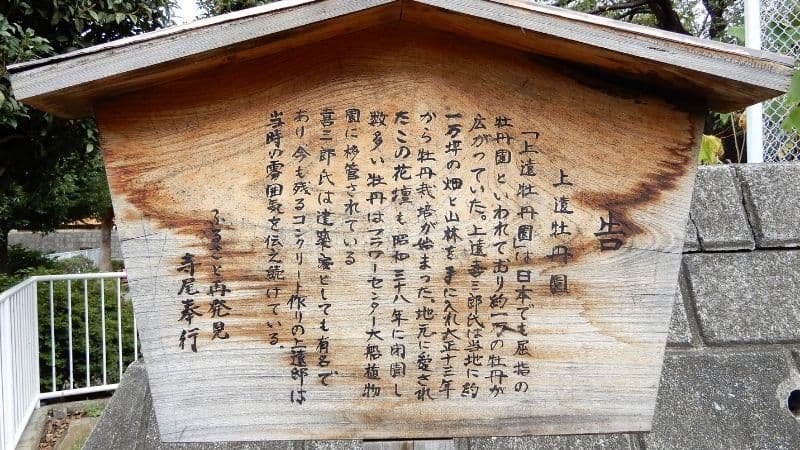 告
上遠牡丹園
「上遠牡丹園」は日本でも屈指の
牡丹園といわれており約一万の牡丹が
広がっていた。上遠喜三郎氏は当地に約
一万坪の畑と山林を手に入れ大正十三年
から牡丹栽培が始まった、地元に愛され
たこの花壇も昭和三十八年に閉園し
数多い牡丹はフラワーセンター大船植物
園に移管されている
喜三郎氏は建築家としても有名で
あり今も残るコンクリート作りの上遠邸は
当時の雰囲気を伝え続けている。
ふるさと再発見
寺尾奉行